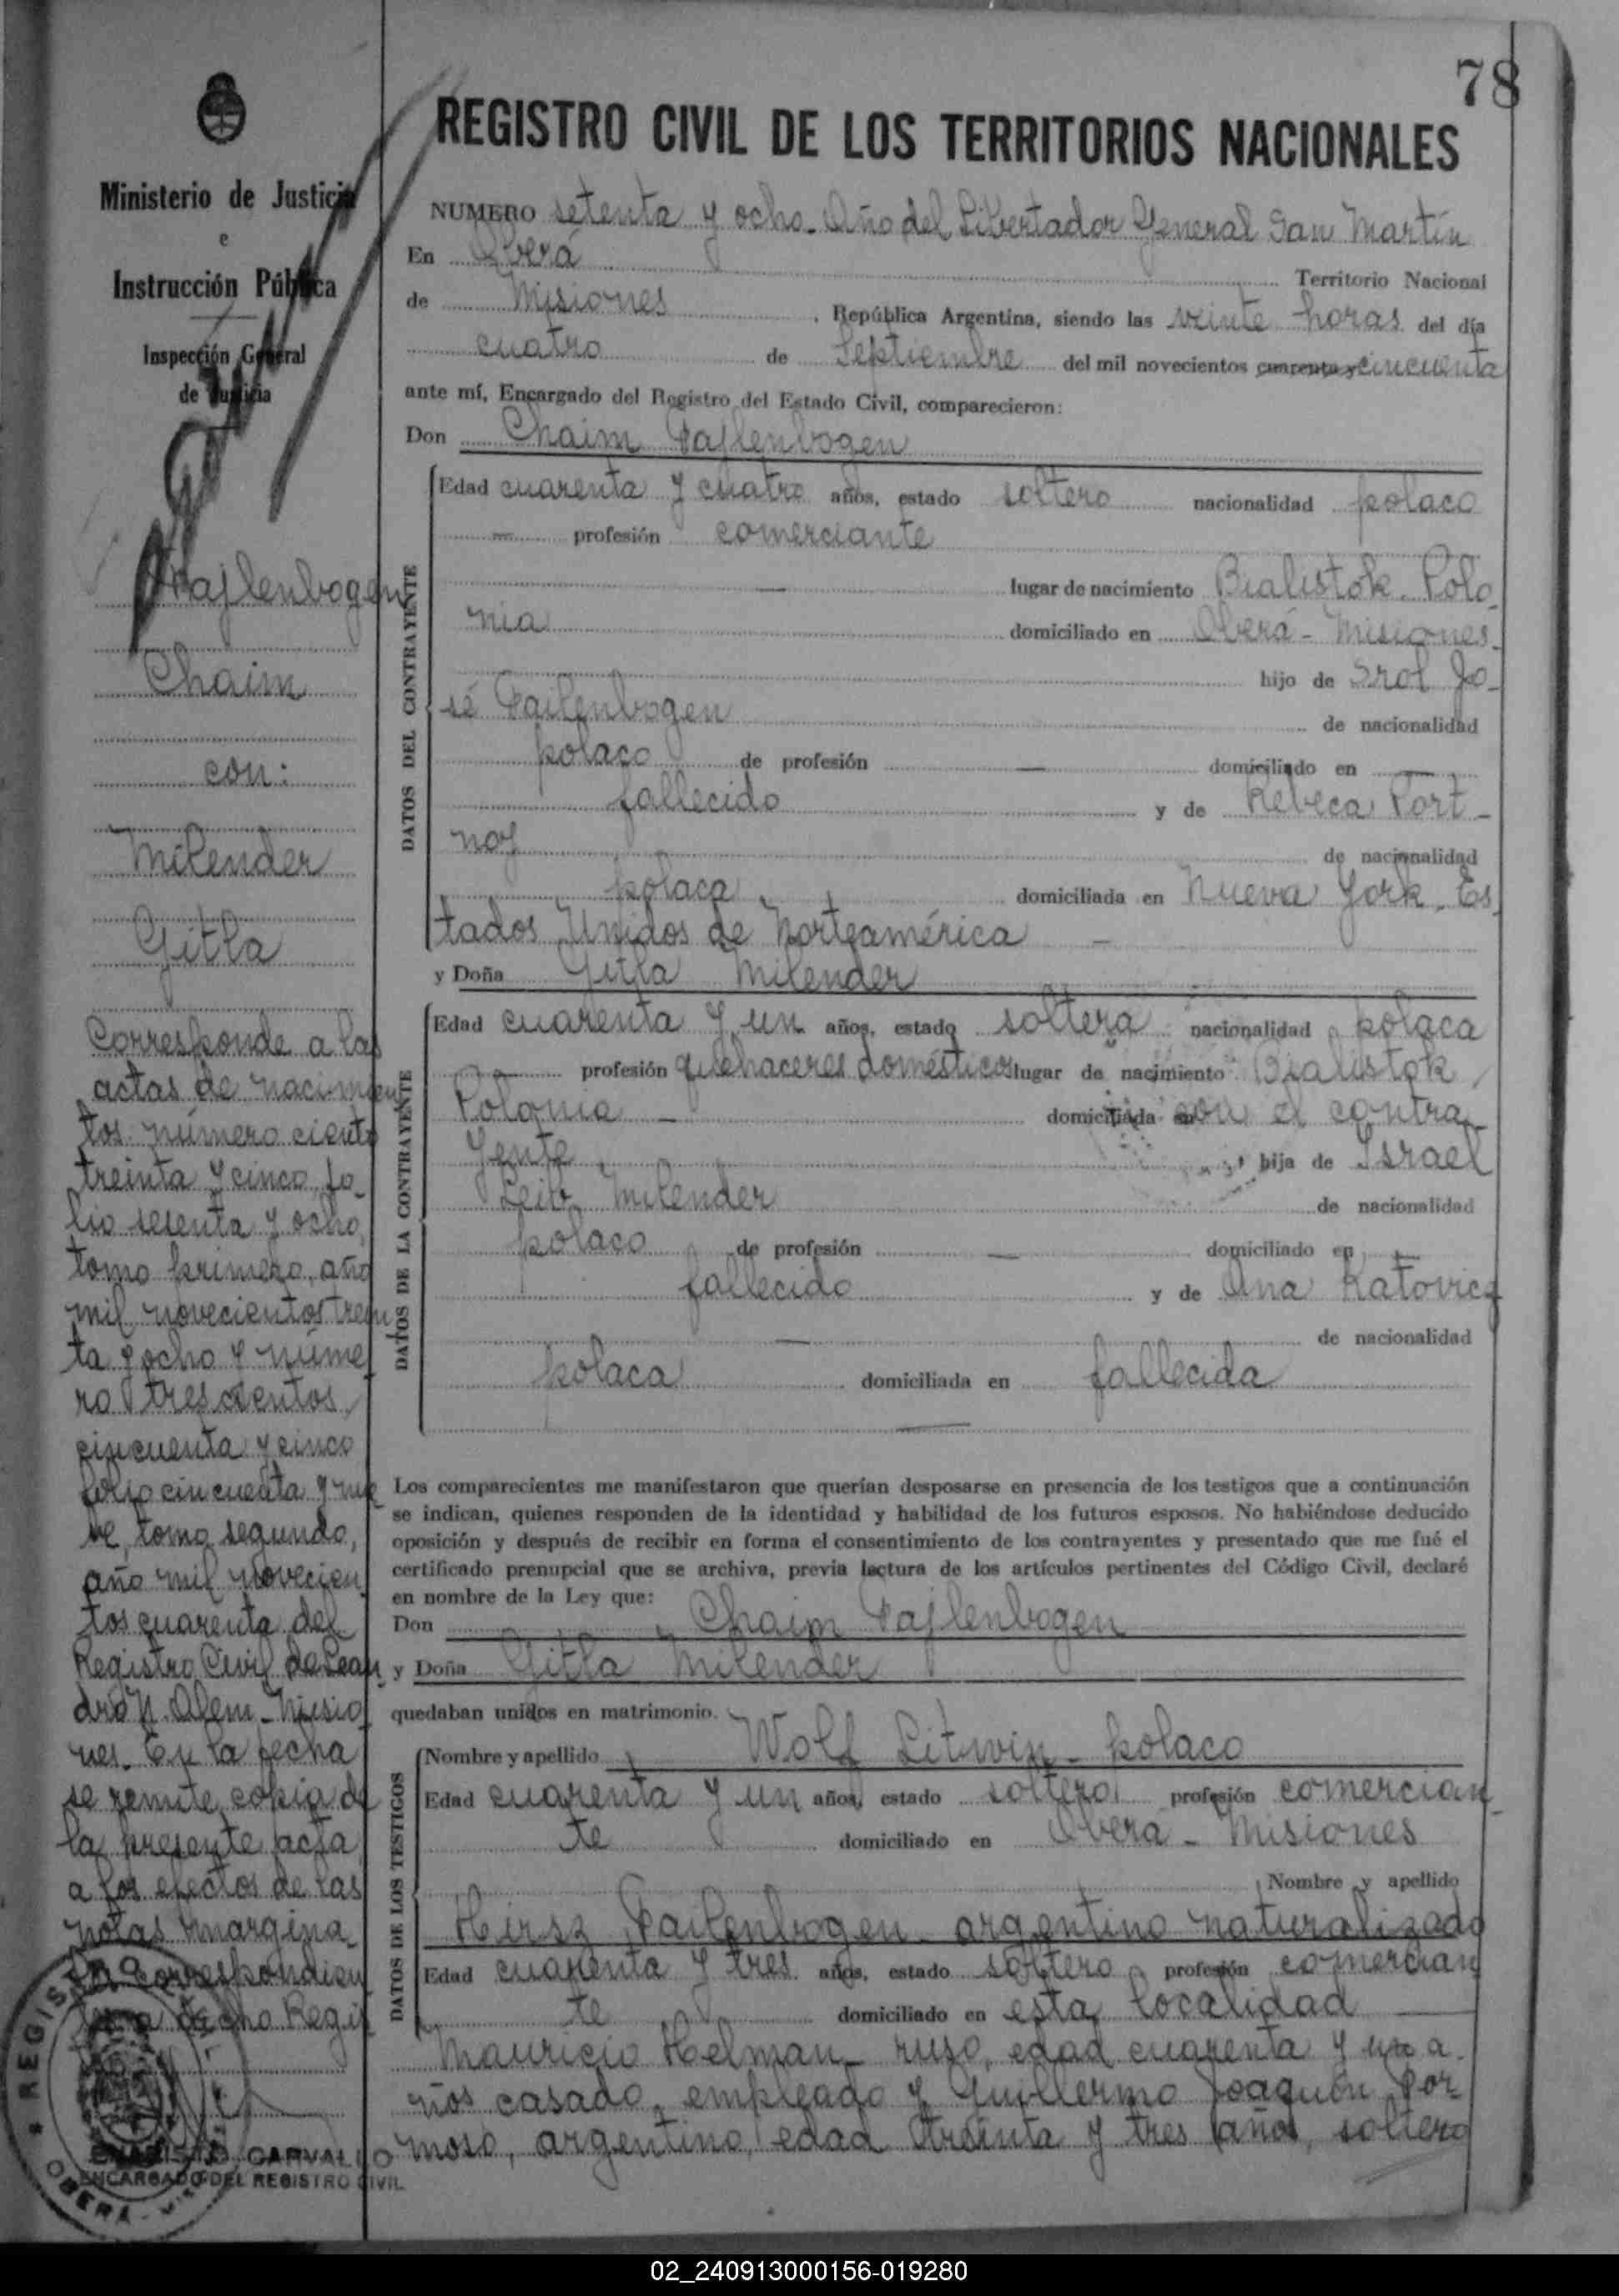 78
REGISTRO CIVIL DE LOS TERRITORIOS NACIONALES
Ministerio de Justicia
e
Instrucción Pública
Inspección General
de Justicia
Fajlenbogen
Chaim
con:
Milender
Gitla
Corresponde a las
actas de nacimien
tos número ciento
treinta y cinco, fo-
lio setenta y ocho,
tomo primero, año
mil novecientos trein
ta y ocho y núme
ro trescientos
cincuenta y cinco
folio cincuenta y nue
ve, tomo segundo,
año mil novecien
tos cuarenta del
Registro Civil de Lean
dro N. Alem - Misio
nes. En la fecha
se remite copia de
la presente acta
a los efectos de las
notas margina
les correspondien
a dicho Regis
REGIS
OBERA
CARVALLO
ENCARGADO DEL REGISTRO CIVIL
NUMERO setenta y ocho. Año del Libertador General San Martín
En Oberá Territorio Nacional
de Misiones, República Argentina, siendo las veinte horas del día
cuatro de Septiembre del mil novecientos cuarenta y cincuenta
ante mí, Encargado del Registro del Estado Civil, comparecieron:
Don Chaim Fajlenbogen
DATOS DEL CONTRAYENTE
Edad cuarenta y cuatro años, estado soltero nacionalidad polaco
— profesión comerciante
— lugar de nacimiento Bialistok. Polo
nia domiciliado en Oberá - Misiones
hijo de Srol Jo-
sé Failenbogen de nacionalidad
polaco de profesión — domiciliado en —
fallecido y de Rebeca Port-
noj de nacionalidad
polaca domiciliada en Nueva York, Es
tados Unidos de Norteamérica —
y Doña Gitla Milender
DATOS DE LA CONTRAYENTE
Edad cuarenta y un años, estado soltera nacionalidad polaca
— profesión quehaceres domésticos lugar de nacimiento Bialistok,
Polonia — domiciliada en con el contra
yente hija de Israel
Leib Milender de nacionalidad
polaco de profesión — domiciliado en —
fallecido y de Ana Katovicz
— de nacionalidad
polaca domiciliada en fallecida
Los comparecientes me manifestaron que querían desposarse en presencia de los testigos que a continuación
se indican, quienes responden de la identidad y habilidad de los futuros esposos. No habiéndose deducido
oposición y después de recibir en forma el consentimiento de los contrayentes y presentado que me fué el
certificado prenupcial que se archiva, previa lectura de los artículos pertinentes del Código Civil, declaré
en nombre de la Ley que:
Don Chaim Fajlenbogen
y Doña Gitla Milender
quedaban unidos en matrimonio.
DATOS DE LOS TESTIGOS
Nombre y apellido Wolf Litwin - polaco
Edad cuarenta y un años, estado soltero profesión comercian
te domiciliado en Oberá - Misiones
Nombre y apellido
Hirsz Failenbogen - argentino naturalizado
Edad cuarenta y tres años, estado soltero, profesión comercian
te domiciliado en esta localidad —
Mauricio Helman - ruso, edad cuarenta y un a
ños casado, empleado y Guillermo Joaquín For
moso, argentino, edad treinta y tres años, soltero
02_240913000156-019280